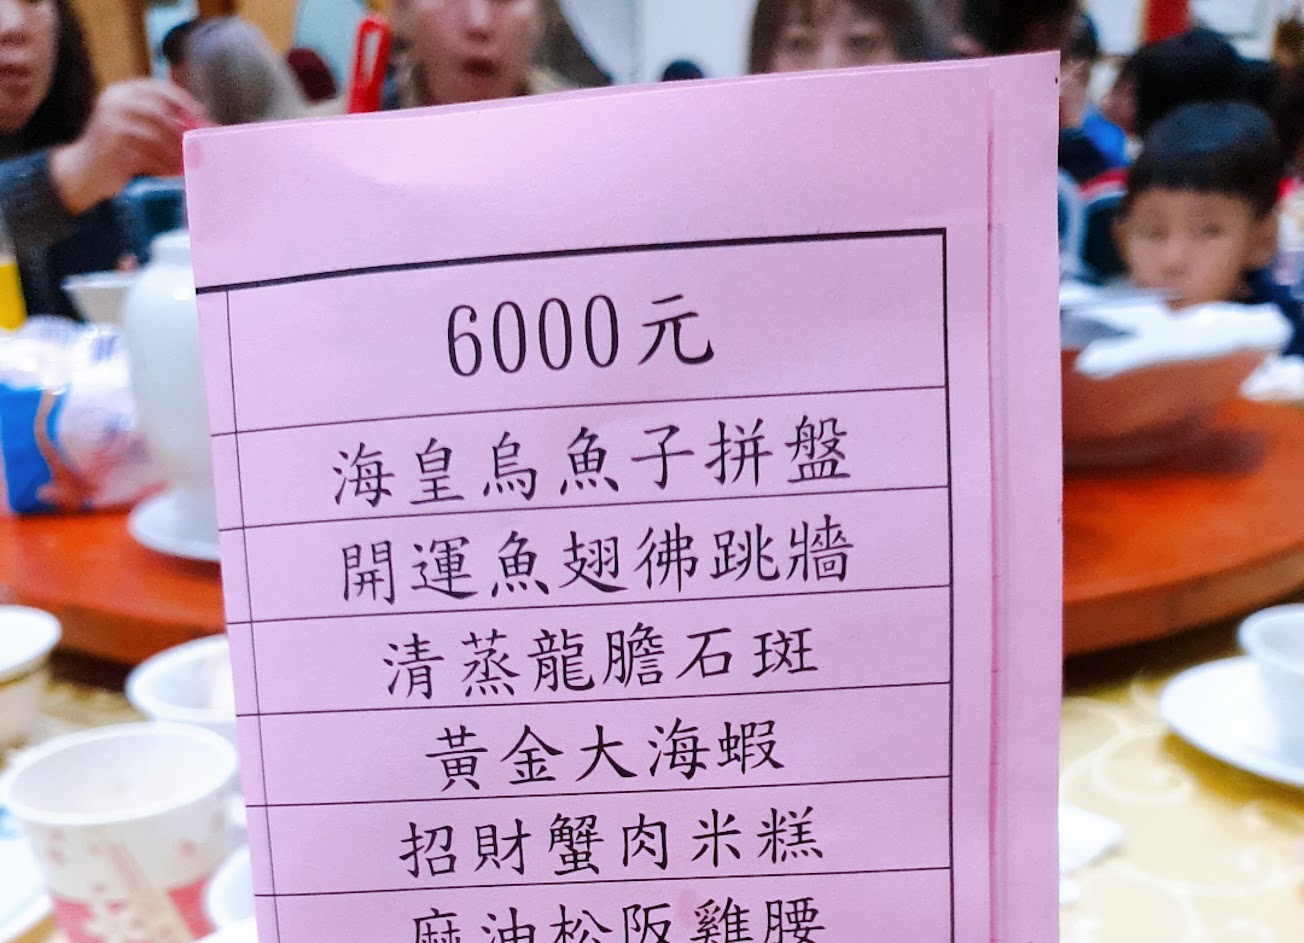 6000元
海皇烏魚子拼盤
開運魚翅彿跳牆
清蒸龍膽石斑
黃金大海蝦
招財蟹肉米糕
麻油松阪雞腰